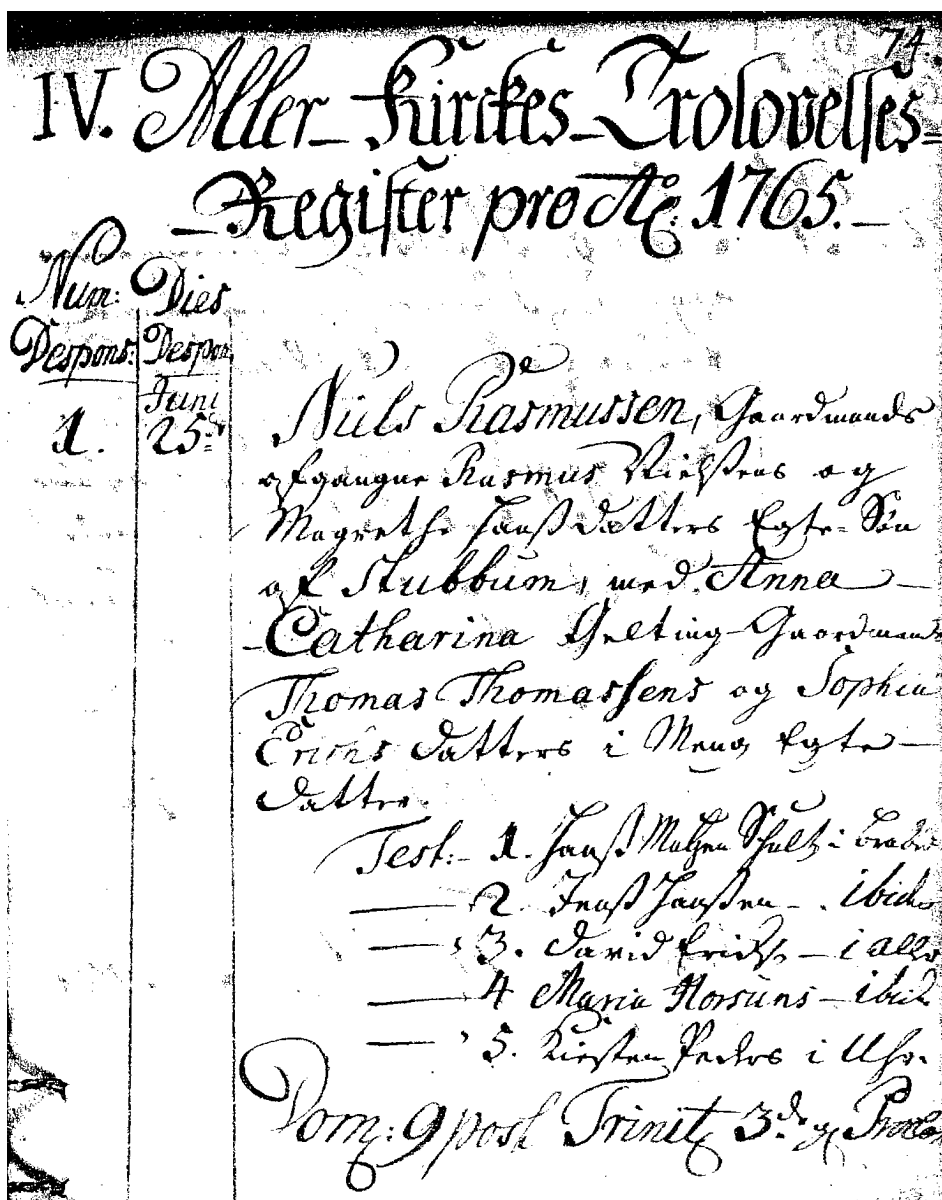 74.
IV. Aller Kirckes Trolovelses=
Register pro Aõ: 1765.
Num: Dies
Despons: Despon
Juni
1. 25de
Niels Rasmussen, Gaardmands
afgangne Rasmus Nielsens og
Magrethe Hanß datters Egte-Søn
af Stubbum, med Anna
Catharina Gelting Gaardmands
Thomas Thomassens og Sophia
Erichs datters i Meng Egte
datter.
Test: 1. Hanß Schultz i
2. Jenß Hanßen - ibid
3. David - i aller
4 Maria - ibid
5. Kirsten Peders i
Dom: 9 post Trinit 3de g